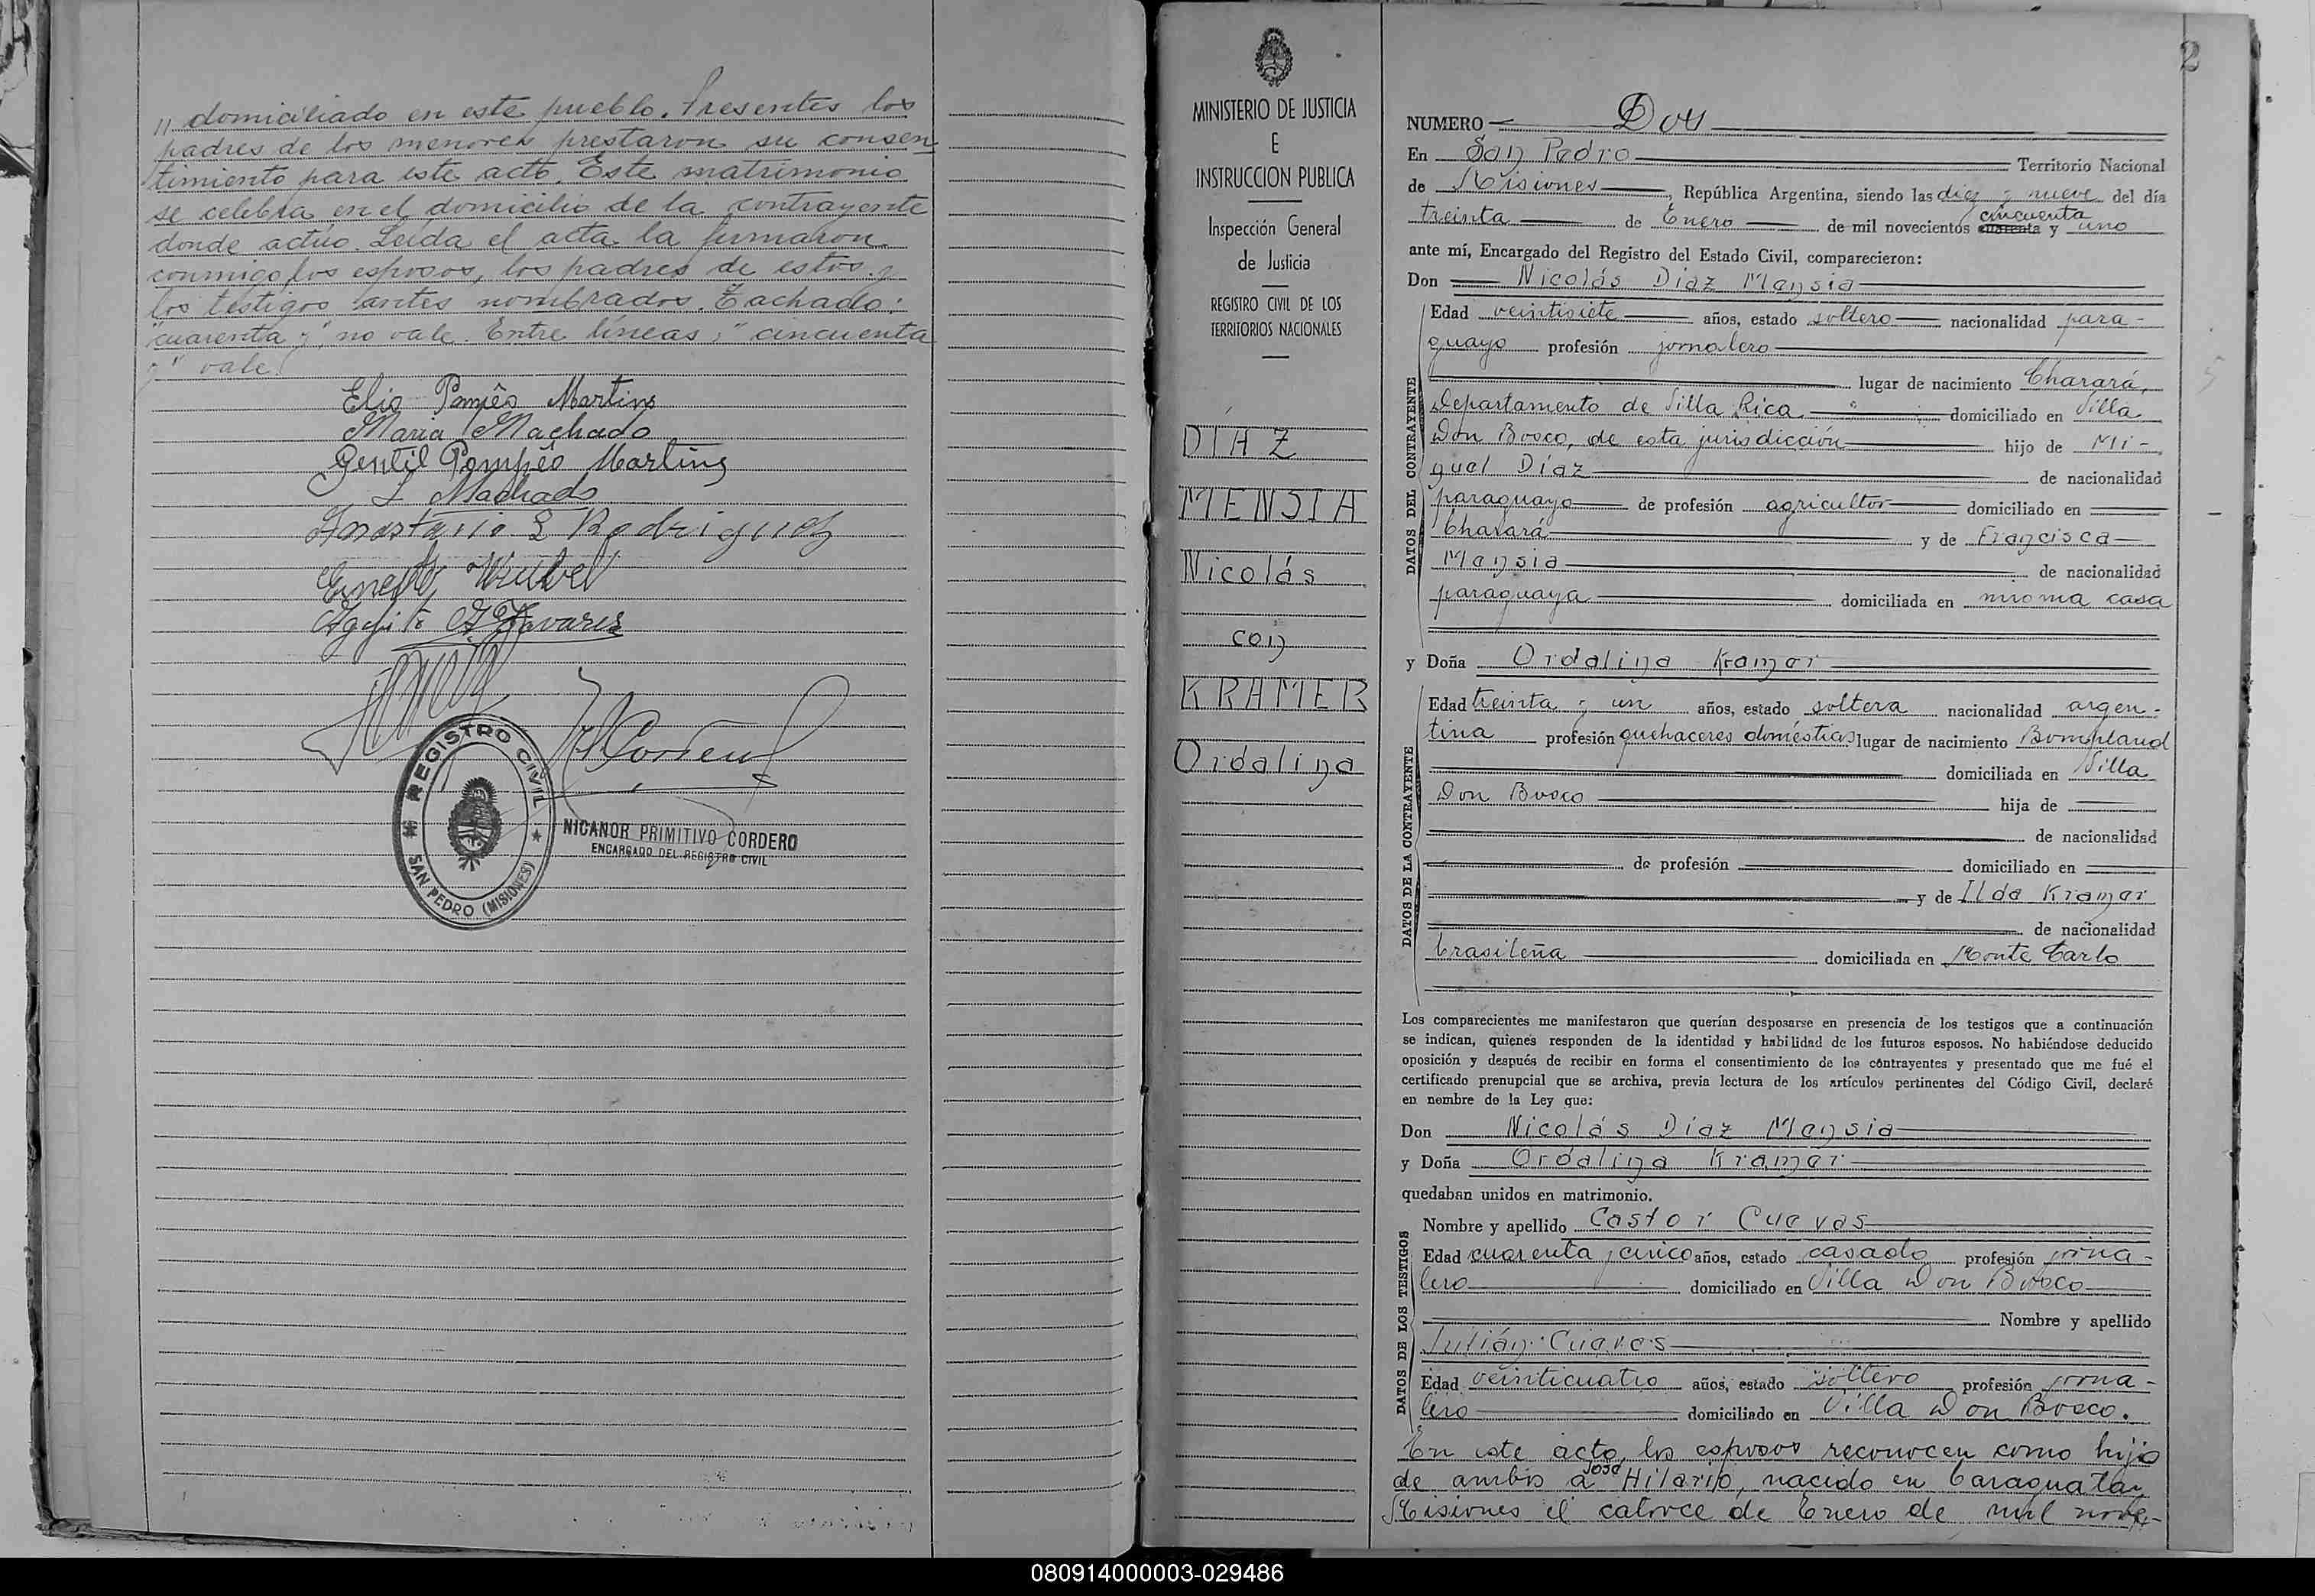 " domiciliado en este pueblo. Presentes los
padres de los menores prestaron su consen
timiento para este acto. Este matrimonio
se celebra en el domicilio de la contrayente
donde actúo. Leída el acta la firmaron
conmigo, los esposos, los padres de estos y
los testigos antes nombrados. Tachado:
"cuarenta y", no vale. Entre líneas: "cincuenta
y" vale.
Elio Pompêo Martins
Maria Machado
Gentil Pompêo Martins
L Machado
Anastacio S Rodriguez
Ernesto
Agapito Tavares
REGISTRO CIVIL
SAN PEDRO (MISIONES)
NICANOR PRIMITIVO CORDERO
ENCARGADO DEL REGISTRO CIVIL
MINISTERIO DE JUSTICIA
E
INSTRUCCION PUBLICA
Inspección General
de Justicia
REGISTRO CIVIL DE LOS
TERRITORIOS NACIONALES
DIAZ
MENSIA
Nicolás
con
KRAMER
Ordalina
2
NUMERO Dos
En San Pedro Territorio Nacional
de Misiones, República Argentina, siendo las diez y nueve del día
treinta de Enero de mil novecientos cuarenta y cincuenta uno
ante mí, Encargado del Registro del Estado Civil, comparecieron:
Don Nicolás Diaz Mensia
DATOS DEL CONTRAYENTE
Edad veintisiete años, estado soltero nacionalidad para-
guayo profesión jornalero
lugar de nacimiento Charará,
Departamento de Villa Rica domiciliado en Villa
Don Bosco, de esta jurisdicción hijo de Mi-
guel Díaz de nacionalidad
paraguayo de profesión agricultor domiciliado en
Charará y de Francisca
Mensia de nacionalidad
paraguaya domiciliada en misma casa
y Doña Ordalina Kramer
DATOS DE LA CONTRAYENTE
Edad treinta y un años, estado soltera nacionalidad argen-
tina profesión quehaceres domésticos lugar de nacimiento Bompland
domiciliada en Villa
Don Bosco hija de
de nacionalidad
de profesión domiciliado en
y de Ilda Kramer
de nacionalidad
brasileña domiciliada en Monte Carlo
Los comparecientes me manifestaron que querían desposarse en presencia de los testigos que a continuación
se indican, quienes responden de la identidad y habilidad de los futuros esposos. No habiéndose deducido
oposición y después de recibir en forma el consentimiento de los contrayentes y presentado que me fué el
certificado prenupcial que se archiva, previa lectura de los artículos pertinentes del Código Civil, declaré
en nombre de la Ley que:
Don Nicolás Diaz Mensia
y Doña Ordalina Kramer
quedaban unidos en matrimonio.
DATOS DE LOS TESTIGOS
Nombre y apellido Castor Cuevas
Edad cuarenta y cinco años, estado casado profesión jorna-
lero domiciliado en Villa Don Bosco
Nombre y apellido
Julián Cuevas
Edad veinticuatro años, estado soltero profesión jorna-
lero domiciliado en Villa Don Bosco.
En este acto los esposos reconocen como hijo
de ambos a José Hilario, nacido en Caraguatay
Misiones el catorce de Enero de mil nove-
080914000003-029486